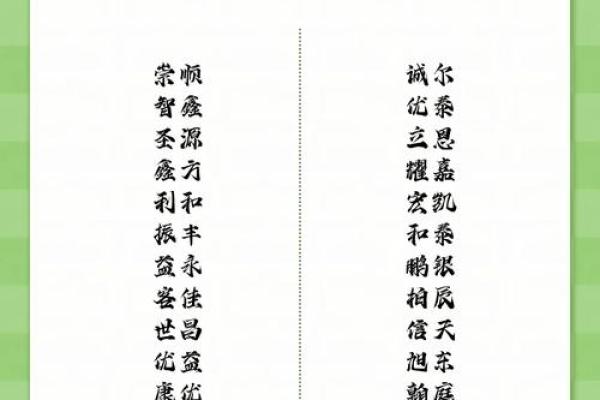 崇顺
智鑫
圣源
鑫方
利和
振丰
益永
客佳
世昌
优益
康优
诚尔
优泰
立恩
耀嘉
宏凯
和泰
鹏银
柏辰
信天
旭东
翰庭